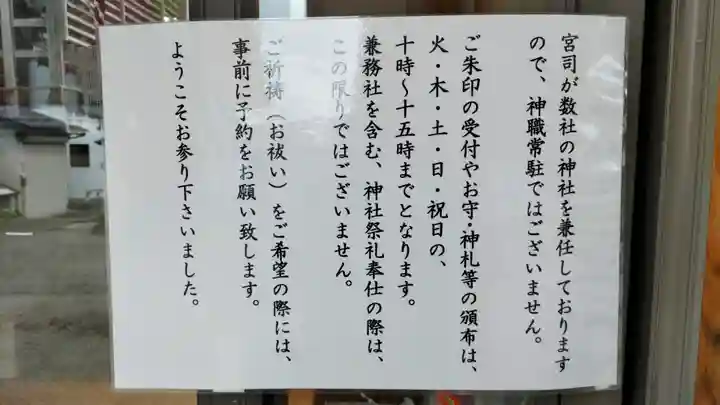 宮司が数社の神社を兼任しております
ので、神職常駐ではございません。
ご朱印の受付やお守・神札等の頒布は、
火・木・土・日・祝日の、
十時～十五時までとなります。
兼務社を含む、神社祭礼奉仕の際は、
この限りではございません。
ご祈祷（お祓い）をご希望の際には、
事前に予約をお願い致します。
ようこそお参り下さいました。